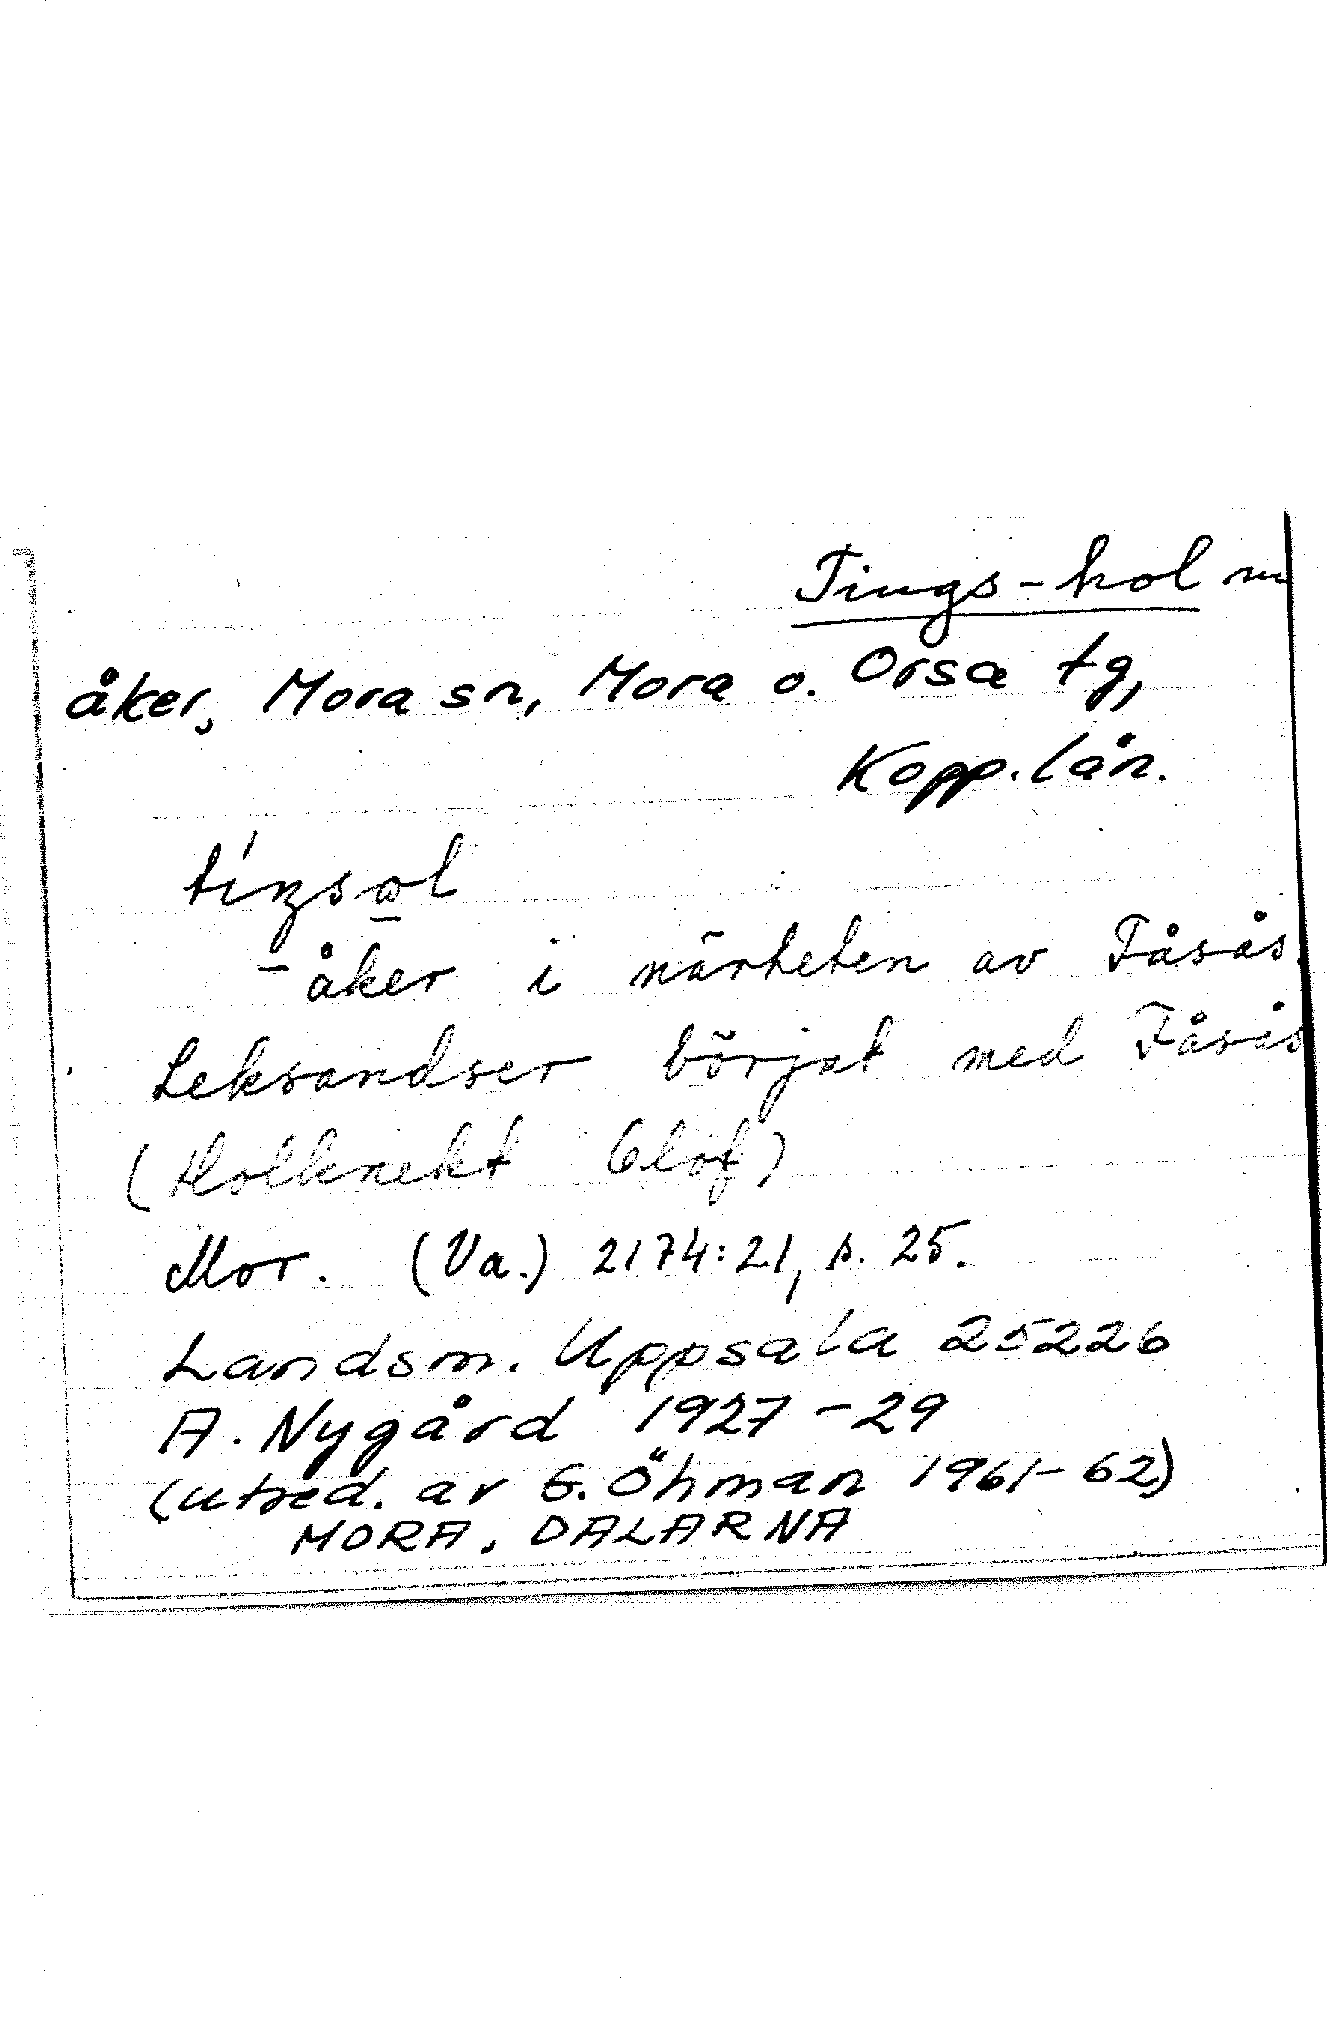 Tings-hol m
åker, Mora sn, Mora o. Orsa tg,
Kopp. län.
åker i närheten av Fåsås.
Leksandser börjat med Fåsås
(Holknekt Olof)
Mor. (Va.) 2174:21, s. 25.
Landsm. Uppsala 25226
A. Nygård 1927-29
(utred. av G. Öhman 1961-62)
MORA, DALARNA